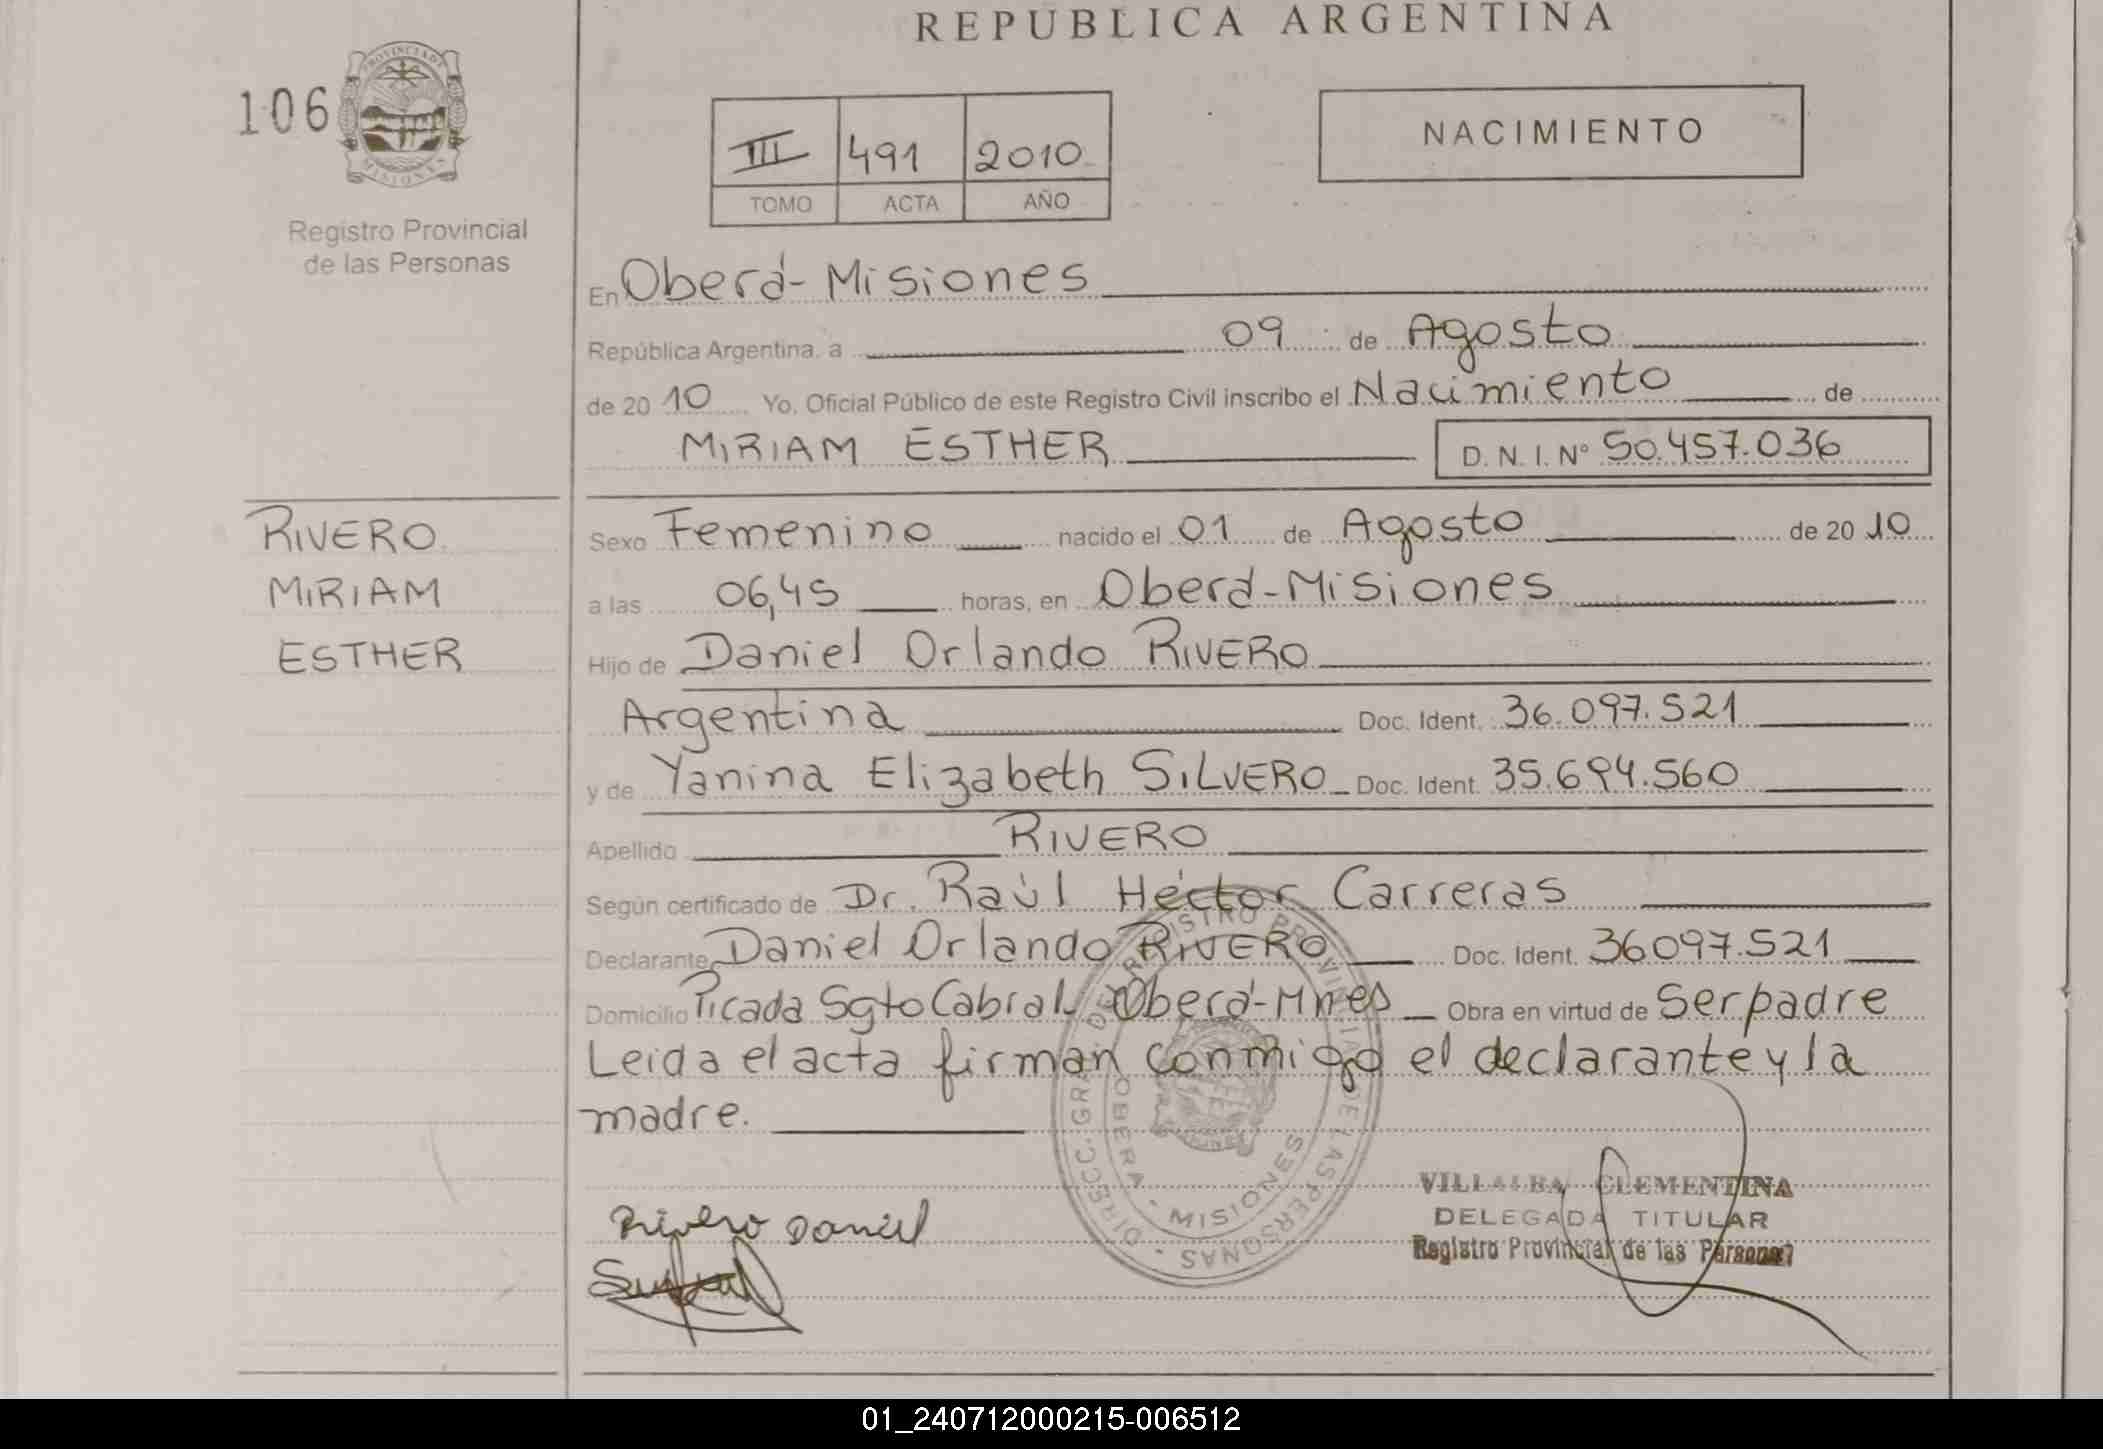 REPUBLICA ARGENTINA
106
PROVINCIA DE
MISIONES
Registro Provincial
de las Personas
III 491 2010
TOMO ACTA AÑO
NACIMIENTO
En Oberá - Misiones
República Argentina, a 09 de Agosto
de 20 10 Yo, Oficial Público de este Registro Civil inscribo el Nacimiento de
MIRIAM ESTHER D.N.I. Nº 50.457.036
RIVERO
MIRIAM
ESTHER
Sexo Femenino nacido el 01 de Agosto de 20 10
a las 06,45 horas, en Oberá - Misiones
Hijo de Daniel Orlando RIVERO
Argentina Doc. Ident. 36.097.521
y de Yanina Elizabeth SILVERO Doc. Ident. 35.694.560
Apellido RIVERO
Según certificado de Dr. Raúl Héctor Carreras
Declarante Daniel Orlando RIVERO Doc. Ident. 36097.521
Domicilio Picada Sgto Cabral Oberá - Mnes Obra en virtud de Ser padre
Leida el acta firman conmigo el declarante y la
madre.
DIRECC. GRAL. DEL REGISTRO PROVINCIAL DE LAS PERSONAS
OBERA - MISIONES
Rivero Daniel
VILLALBA CLEMENTINA
DELEGADA TITULAR
Registro Provincial de las Personas
01_240712000215-006512